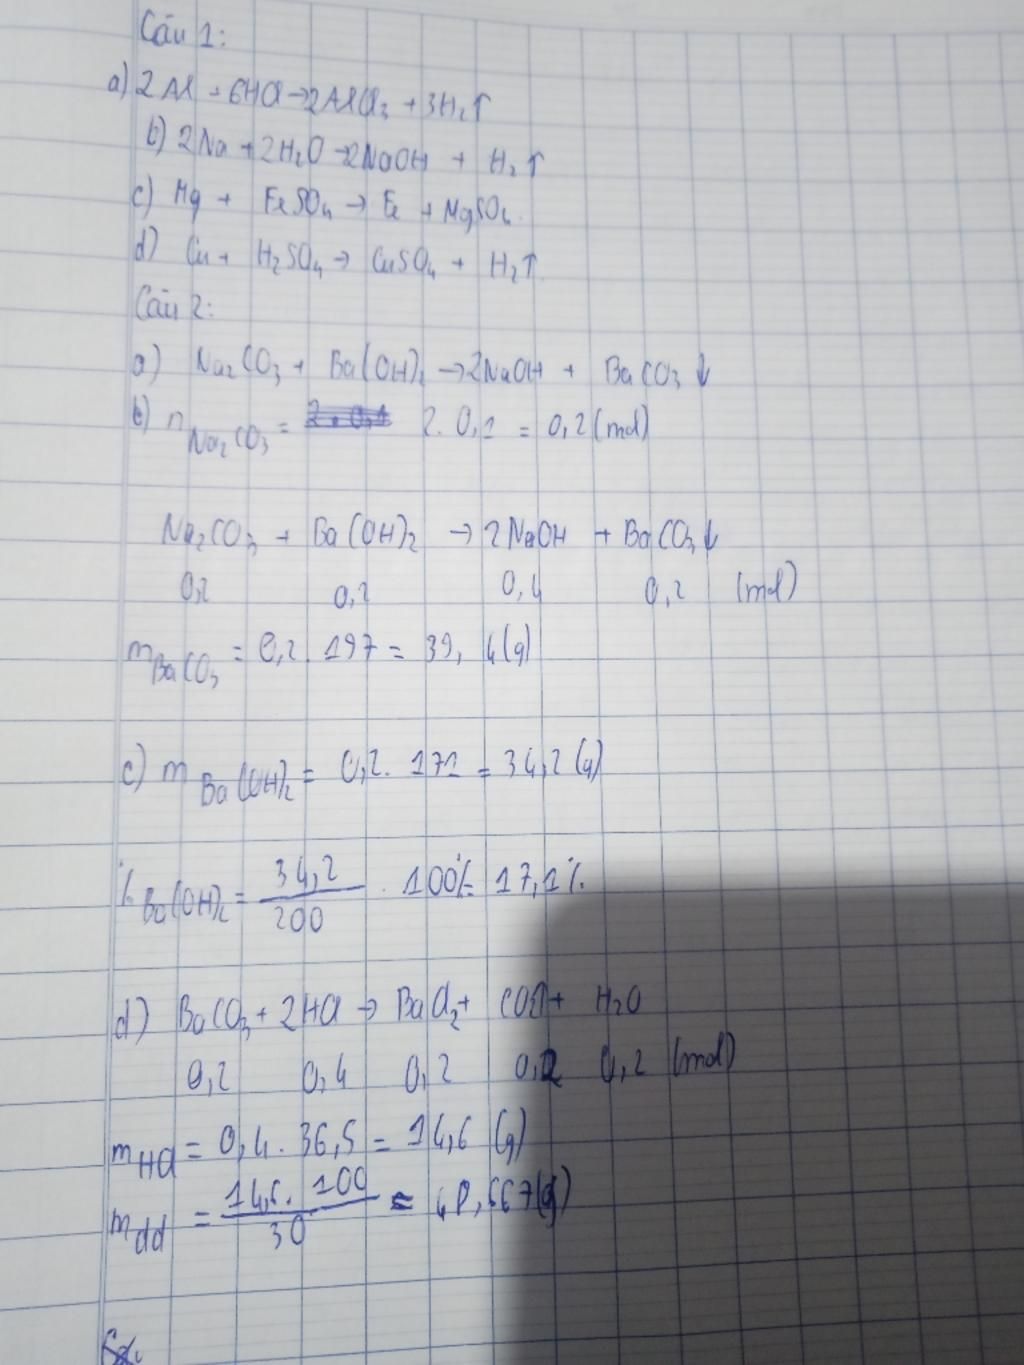 Câu 1:
a) 2Al + 6HCl → 2AlCl₃ + 3H₂↑
b) 2Na + 2H₂O → 2NaOH + H₂↑
c) Mg + FeSO₄ → Fe + MgSO₄.
d) Cu + H₂SO₄ → CuSO₄ + H₂↑
Câu 2:
a) Na₂CO₃ + Ba(OH)₂ → 2NaOH + BaCO₃↓
b) n Na₂CO₃ = 2.0,1 = 0,2 (mol)
Na₂CO₃ + Ba(OH)₂ → 2NaOH + BaCO₃↓
0,2 0,2 0,4 0,2 (mol)
m BaCO₃ = 0,2.197 = 39,4(g)
c) m Ba(OH)₂ = 0,2.171 = 34,2 (g)
% Ba(OH)₂ = 34,2/200 . 100% = 17,1%.
d) BaCO₃ + 2HCl → BaCl₂ + CO₂↑ + H₂O
0,2 0,4 0,2 0,2 0,2 (mol)
m HCl = 0,4.36,5 = 14,6 (g)
m dd = 14,6.100/30 = 48,667(g)